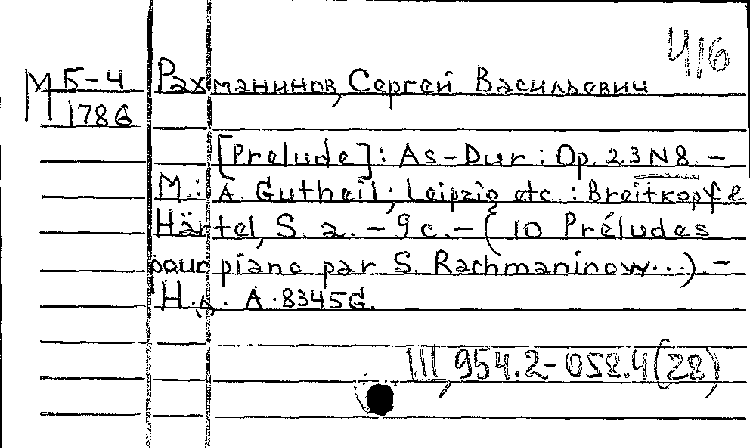 Ч16
М Б-4 Рахманинов, Сергей Васильевич
1786
[Prelude]: As-Dur: Op. 23 N 8. –
М.: A. Gutheil; Leipzig etc.: Breitkopf e
Härtel, S. a. – 9 с. – (10 Préludes
pour piano par S. Rachmaninow...). –
Н.д. A.8345G.
III, 954.2-058.4(28)